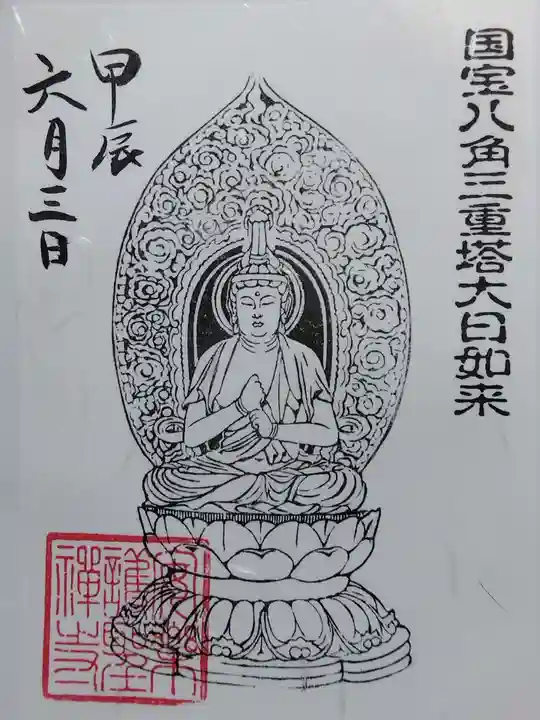 国宝八角三重塔大日如来
甲辰
六月三日
安樂
護聖
禅寺